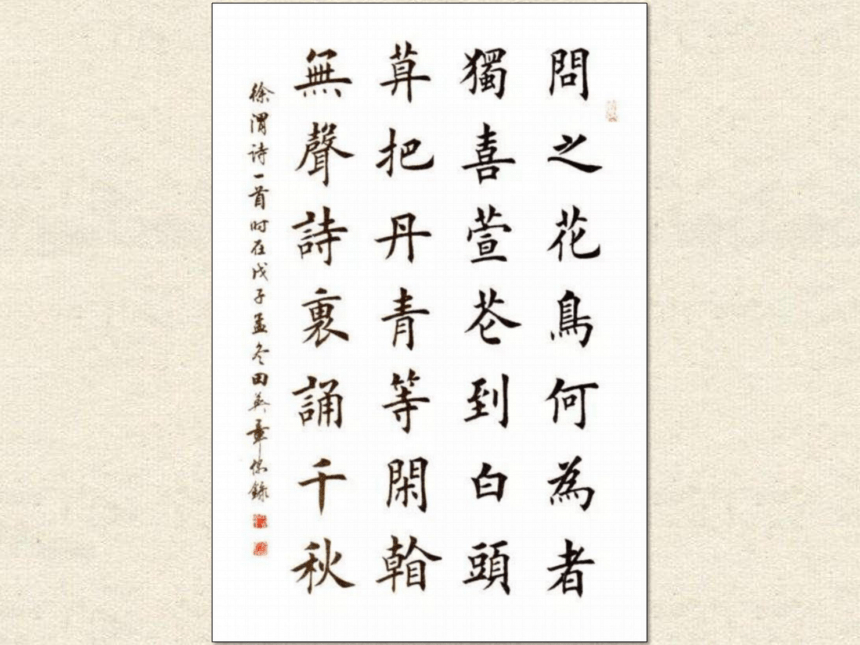 問之花鳥何為者
獨喜萱芲到白頭
莫把丹青等閑看
無聲詩裏誦千秋
徐渭诗一首时在戊子孟冬田英章恭錄